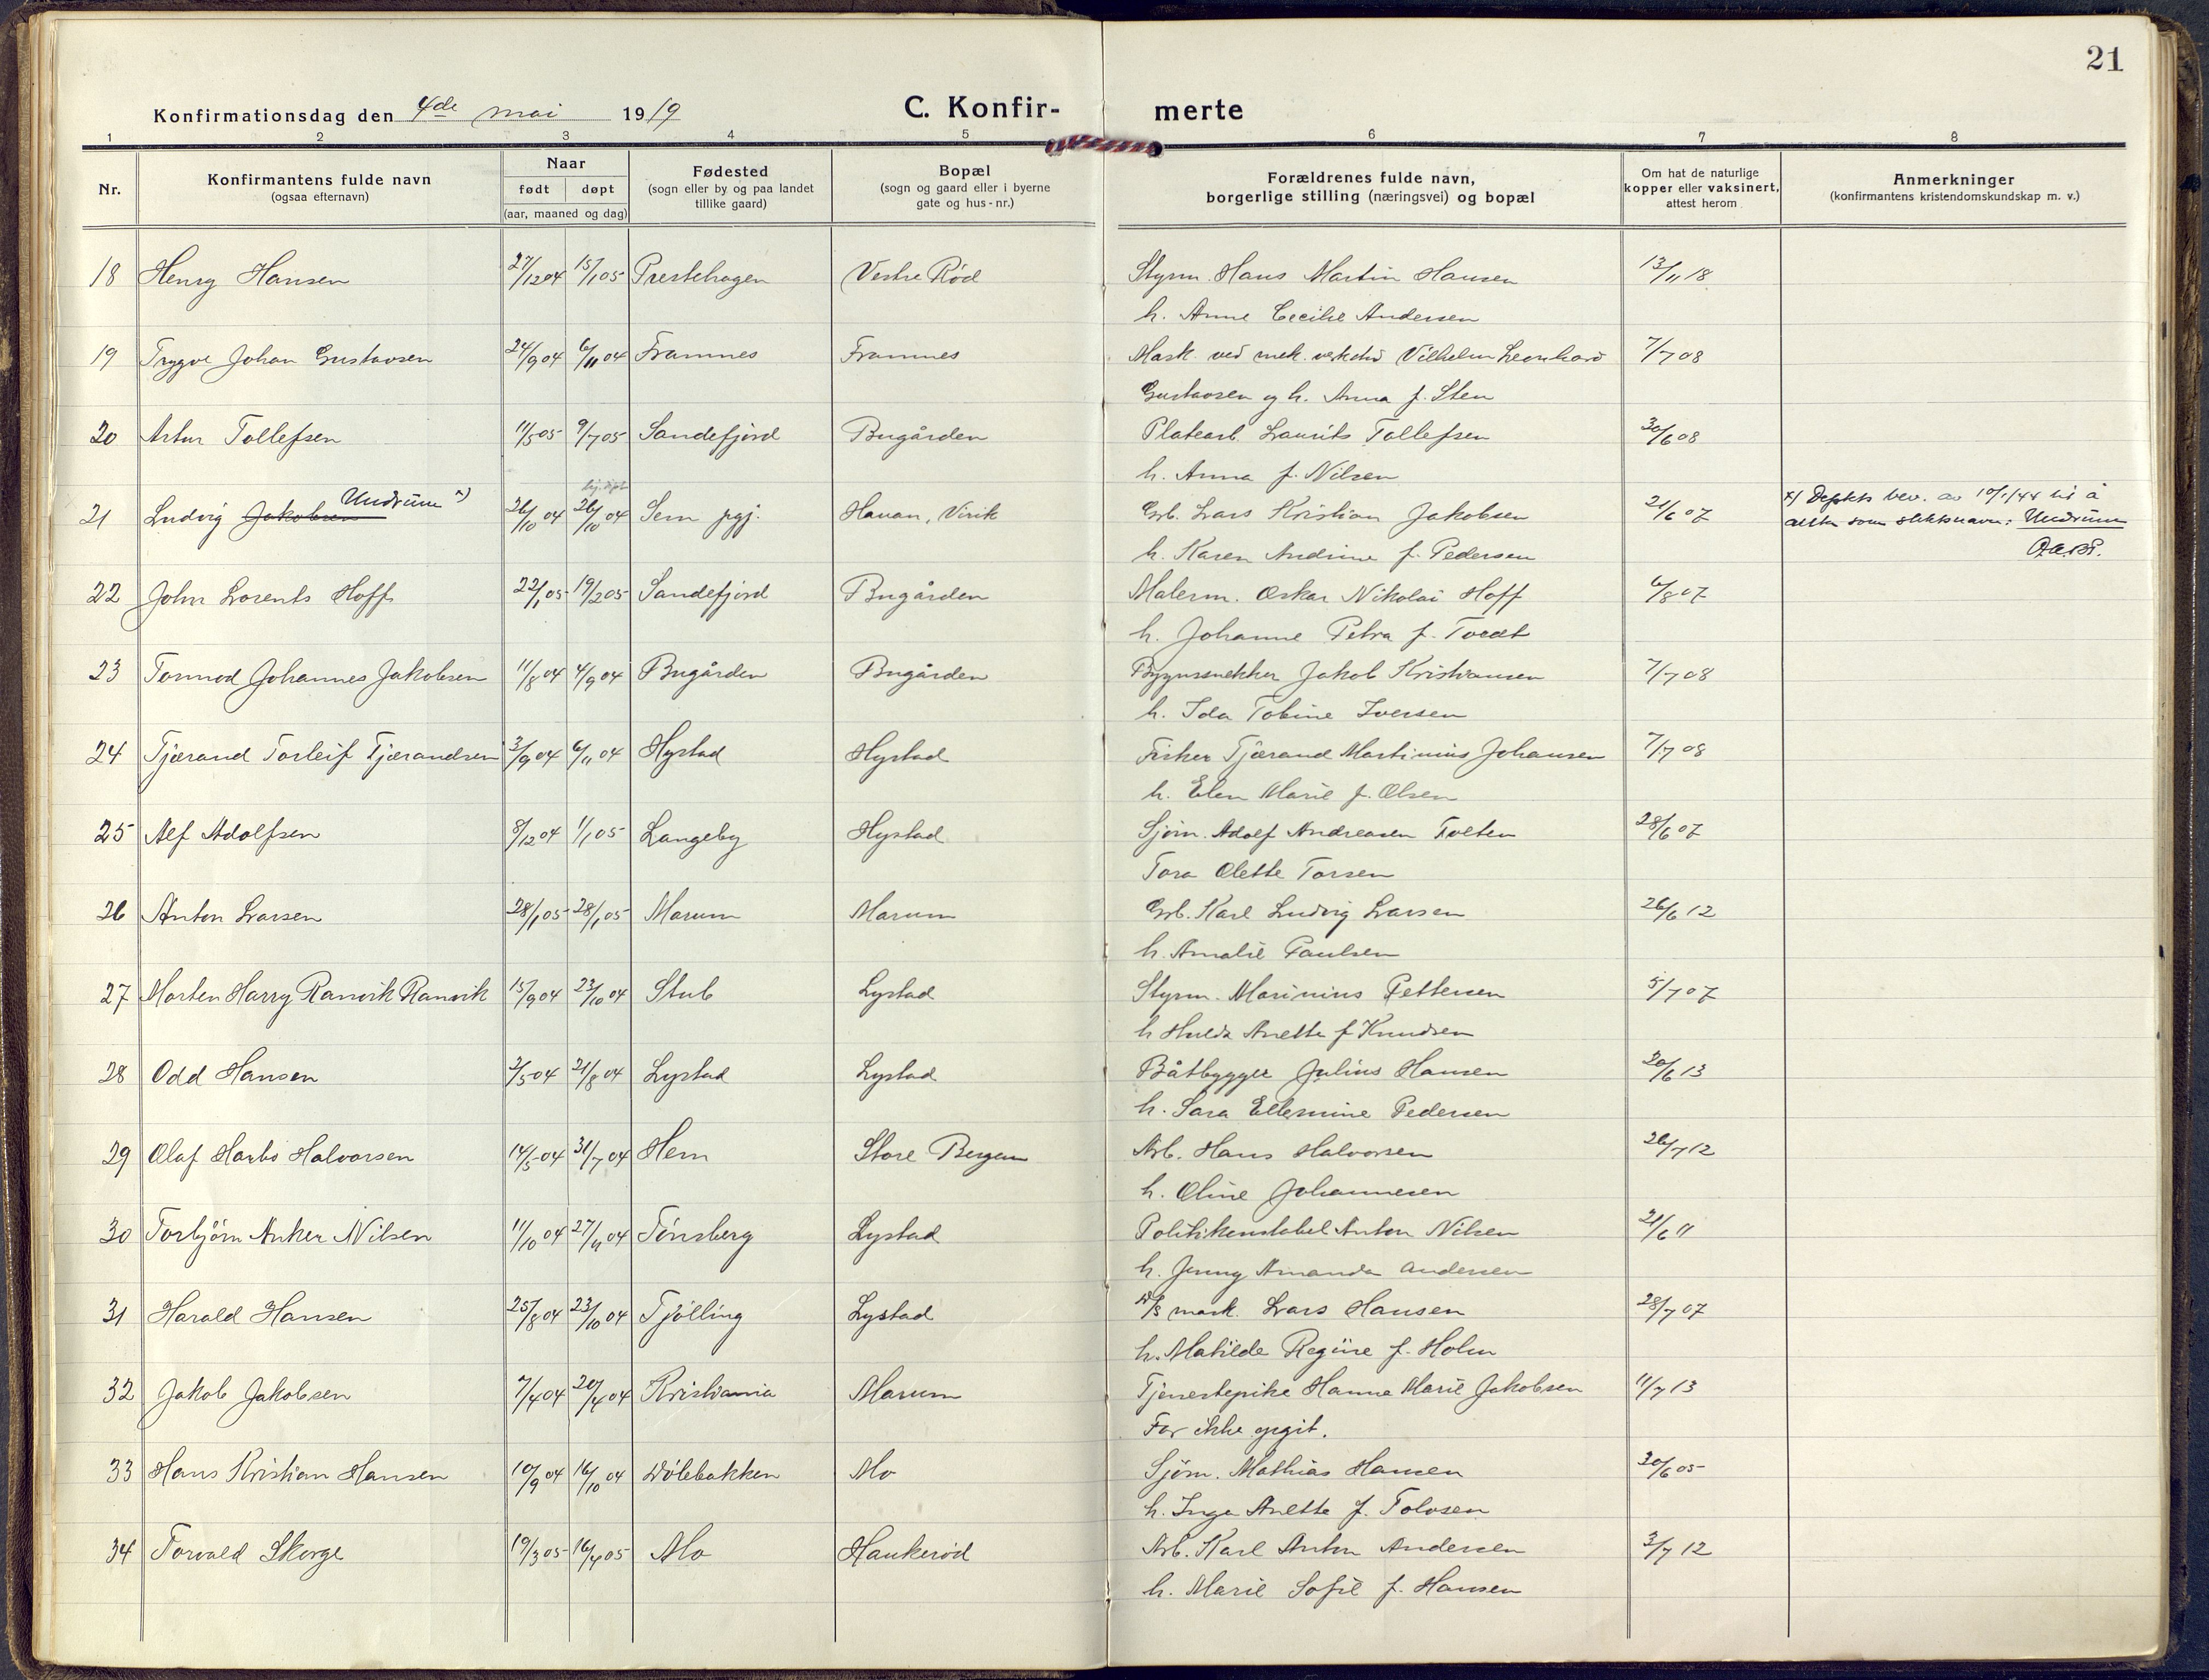 21
Konfirmationsdag den 4de mai 1919
C. Konfir- merte
1 2 3 4 5 6 7 8
Nr.
Konfirmantens fulde navn
(ogsaa efternavn)
Naar
født døpt
(aar, maaned og dag)
Fødested
(sogn eller by og paa landet
tillike gaard)
Bopæl
(sogn og gaard eller i byerne
gate og hus-nr.)
Forældrenes fulde navn,
borgerlige stilling (næringsvei) og bopæl
Om hat de naturlige
kopper eller vaksinert,
attest herom
Anmerkninger
(konfirmantens kristendomskundskap m. v.)
18 Henry Hansen 27/12 04 15/1 05 Prestehagen Vestre Rød Styrm. Hans Martin Hansen 13/11 18
h. Anne Cecilie Andersen
19 Trygve Johan Gustavsen 24/9 04 6/11 04 Framnes Framnes Mask. ved mek. verksted Vilhelm Leonhard 7/7 08
Gustavsen og h. Anna f. Sten
20 Artur Tollefsen 11/5 05 9/7 05 Sandefjord Bugården Platearb. Laurits Tollefsen 30/6 08
h. Anna f. Nilsen
21 Ludvig Jakobsen Undrum x) 26/10 04 26/10 04 Sem pgj. Havan, Virik Grb. Lars Kristian Jakobsen 21/6 07 x/ Depkts bev. av 10/1/44 til å
h. Karen Andrine f. Pedersen anta som slektsnavn: Undrum
22 John Lorents Hoff 22/1 05 19/2 05 Sandefjord Bugården Malerm. Oskar Nikolai Hoff 6/8 07
h. Johanne Petra f. Tvedt
23 Tormod Johannes Jakobsen 11/8 04 4/9 04 Bugården Bugården Bygnssnekker Jakob Kristiansen 7/7 08
h. Ida Tobine Iversen
24 Tjærand Torleif Tjærandsen 3/9 04 6/11 04 Hystad Hystad Fisker Tjærand Martinius Johansen 7/7 08
h. Elen Marie f. Olsen
25 Alf Adolfsen 8/12 04 1/1 05 Langeby Hystad Sjøm. Adolf Andreasen Tveten 28/6 07
Tora Olette Torsen
26 Anton Larsen 28/1 05 28/1 05 Marum Marum Grb. Karl Ludvig Larsen 26/6 12
h. Amalie Paulsen
27 Morten Harry Ranvik Ranvik 15/9 04 23/10 04 Stub Lystad Styrm. Marinius Pettersen 5/7 07
h Hulda Anette f Knudsen
28 Odd Hansen 2/5 04 21/8 04 Lystad Lystad Båtbygger Julius Hansen 20/6 13
h. Sara Ellesmine Pedersen
29 Olaf Harbo Halvorsen 14/5 04 31/7 04 Hem Store Bergan Arb. Hans Halvorsen 26/7 12
h. Oline Johannesen
30 Torbjørn Anker Nilsen 11/10 04 27/11 04 Tønsberg Lystad Politikonstabel Anton Nilsen 21/6 11
h. Jenny Amanda Andersen
31 Harald Hansen 25/8 04 23/10 04 Tjølling Lystad mask. Lars Hansen 28/7 07
h. Matilde Regine f. Holm
32 Jakob Jakobsen 7/4 04 20/4 04 Kristiania Marum Tjenestepike Hanna Marie Jakobsen 11/7 13
Far ikke opgit.
33 Hans Kristian Hansen 10/9 04 16/10 04 Dølebakken Mo Sjøm. Mathias Hansen 30/6 05
h. Inga Anette f. Tolvsen
34 Torvald Skorge 19/3 05 16/4 05 Mo Haukerød Arb. Karl Anton Andersen 3/7 12
h. Marie Sofie f. Hansen